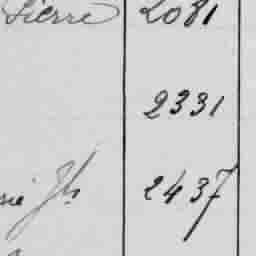 Pierre 2081
2331
2437